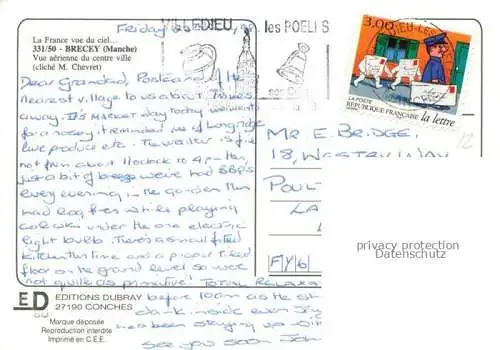 La France vue du ciel...
331/50 - BRECEY (Manche)
Vue aérienne du centre ville
(cliché M. Chevret)
Friday
VILLEDIEU
les POELES
3,00
LA POSTE
REPUBLIQUE FRANÇAISE la lettre
Dear Grandad, Postcard of the
nearest village to us about 2 miles
away. It's MARKET day today we went
for a nosey, it reminded me of Longridge
live produce etc. The weather is
not from about 11 o'clock to 4pm
just a bit of breeze we've had BBQs
every evening in the garden then
had log fires while playing
under the one electric
light bulb. There's a small fitted
kitchen this time and a p-cour tiled
floor on the ground level so were
not quite as primitive! TOTAL
before 10am as the
dark inside even
has been staying up
see you soon
MR E BRIDGE,
18,
POUL
LA
F/Y/6/
12
privacy protection
Datenschutz
ED
EDITIONS DUBRAY
27190 CONCHES
Marque déposée
Reproduction interdite
Imprimé en C.E.E.